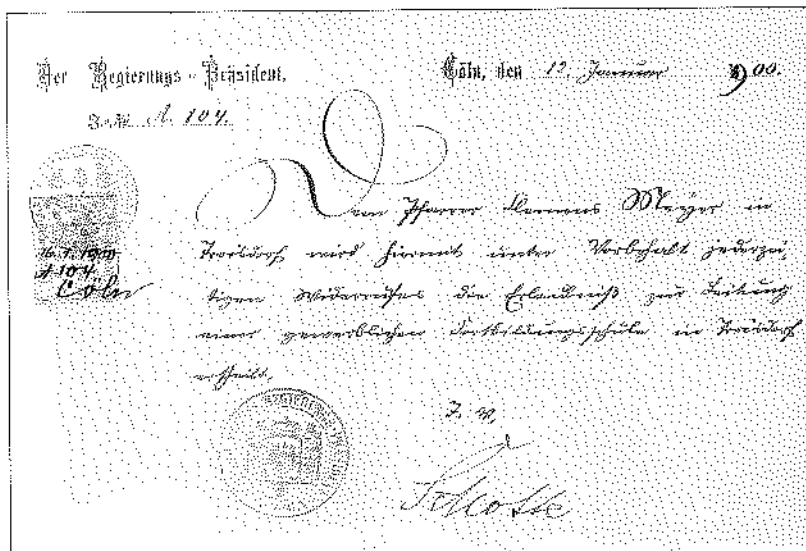 Der Regierungs-Präsident. Cöln, den 12. Januar 1900.
J.-№ A. 104.
Dem Pfarrer Clemens Meyer in
Troisdorf wird hiermit unter Vorbehalt jederzei-
16.1.1900
A 104.
Cöln
tigen Widerrufes die Erlaubniß zur Leitung
einer gewerblichen Fortbildungsschule in Troisdorf
ertheilt.
I. V.